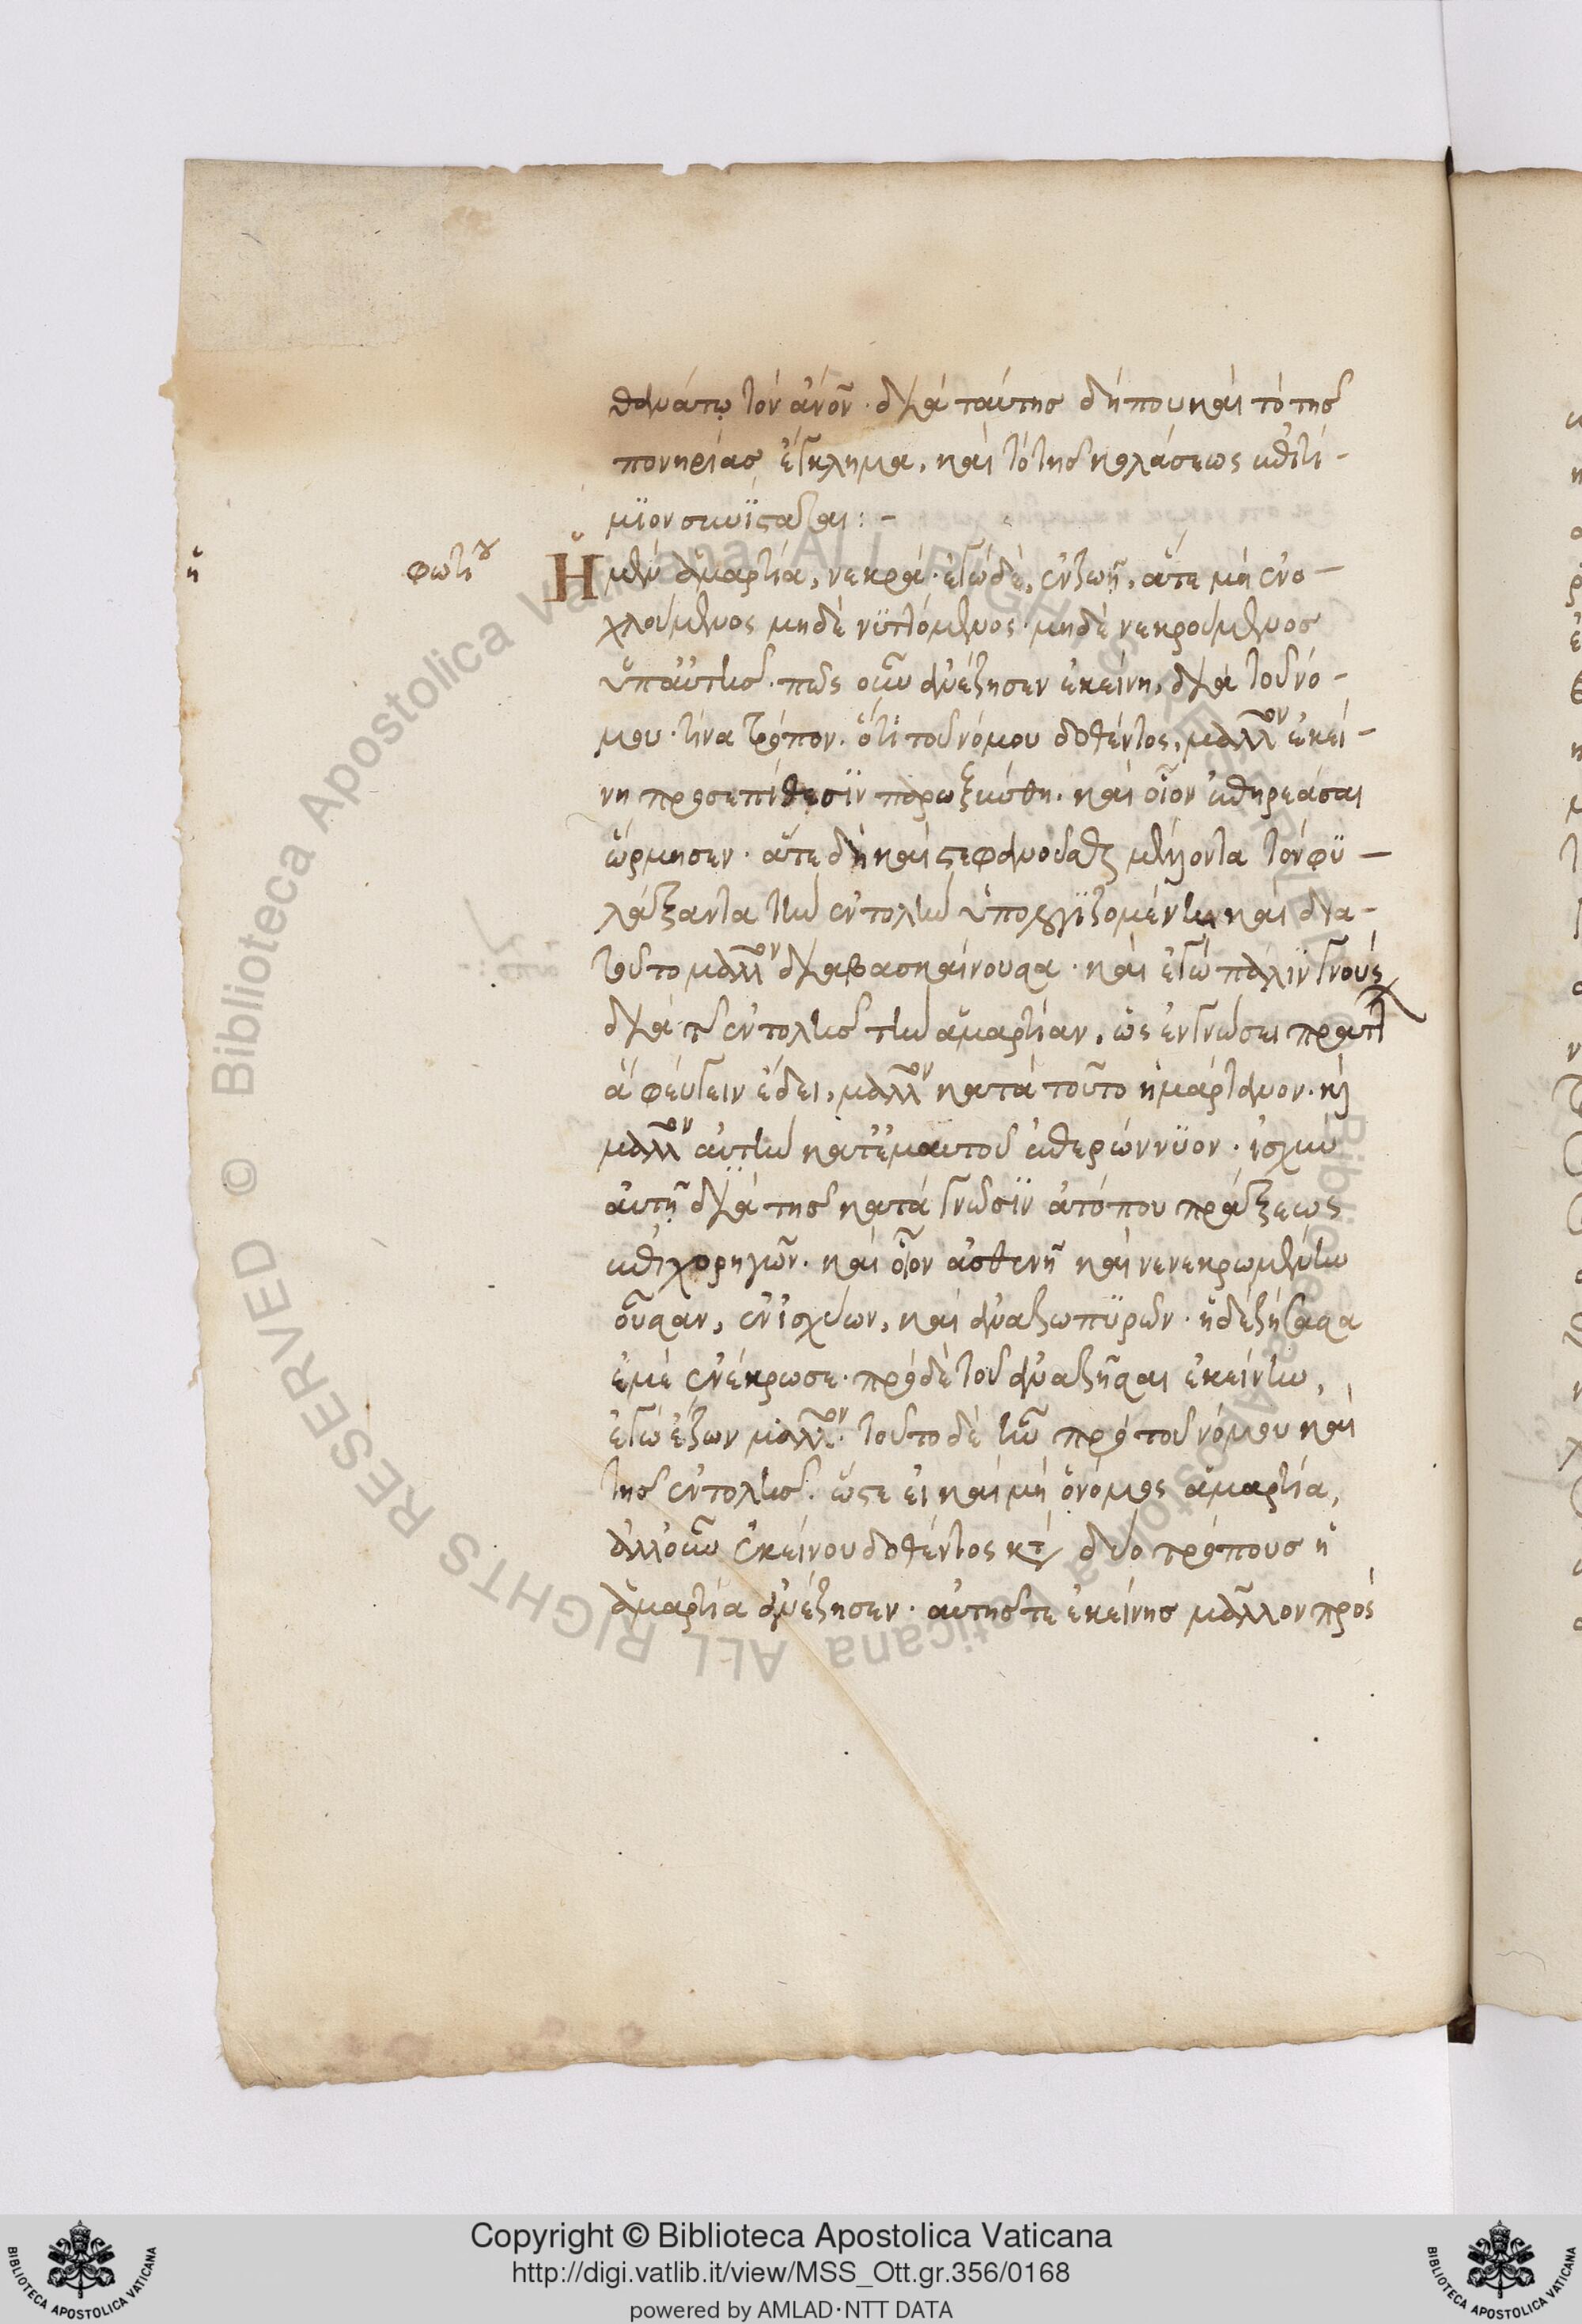 θανάτῳ τὸν ἀνον̅· διὰ ταύτης δήπου καὶ τὸ τῆς
πονηρίας ἔγκλημα, καὶ τὸ τῆς κολάσεως ἐπιτί-
μϊον συνϊσταται:-
ἢ Φωτίου Ἡ μὲν ἁμαρτία, νεκρά· ἐγὼ δὲ, ἐν ζωῇ, ἅτε μὴ ἐνο-
χλούμενος μηδὲ νϋττόμενος· μηδὲ νεκρούμενος
ὑπαὐτῆς· πῶς οὖν ἀνέζησεν ἐκείνη, διὰ τοῦ νό-
μου· τίνα τρόπον· ὅτι τοῦ νόμου δοθέντος, μᾶλλον ἐκεί-
νη πρὸς ἐπίθεσϊν παρωξύνθη· καὶ οἷον ἐπηρεάσαι
ὥρμησεν· ἅτε δὴ καὶ στεφανοῦσθαι μέλλοντα τὸν φϋ-
λάξαντα τὴν ἐντολὴν ὑπολογϊζομένη καὶ δια-
τοῦτο μᾶλλον διαβασκαίνουσα· καὶ ἐγὼ πάλϊν γνοὺς
διὰ τῆς ἐντολῆς τὴν ἁμαρτίαν, ὡς ἐν γνώσει πράττων
ἃ φεύγειν ἔδει, μᾶλλον κατὰ τοῦτο ἡμάρτανον· καὶ
μᾶλλον αὐτὴν κατ' ἐμαυτοῦ ἐπερώννϋον· ἰσχὺν
αὐτῇ διὰ τῆς κατὰ γνῶσϊν ἀτόπου πράξεως
ἐπιχορηγῶν· καὶ οἷον ἀσθενῆ καὶ νενεκρωμένην
οὖσαν, ἐνισχύων, καὶ ἀναζωπϋρῶν· ἡ δὲ ζήσασα
ἐμὲ ἐνέκρωσε· πρὸ δὲ τοῦ ἀναζῆσαι ἐκείνην,
ἐγὼ ἔζων μᾶλλον· τοῦτο δὲ ἦν πρὸ τοῦ νόμου καὶ
τῆς ἐντολῆς· ὥστε εἰ καὶ μὴ ὁ νόμος ἁμαρτία,
ἀλλ' οὖν ἐκείνου δοθέντος κατὰ δύο τρόπους ἡ
ἁμαρτία ἀνέζησεν· αὐτῆς τε ἐκείνης μᾶλλον πρὸς
Copyright © Biblioteca Apostolica Vaticana
http://digi.vatlib.it/view/MSS_Ott.gr.356/0168
powered by AMLAD·NTT DATA
BIBLIOTECA APOSTOLICA VATICANA
BIBLIOTECA APOSTOLICA VATICANA
© Biblioteca Apostolica Vaticana ALL RIGHTS RESERVED
© Biblioteca Apostolica Vaticana ALL RIGHTS RESERVED